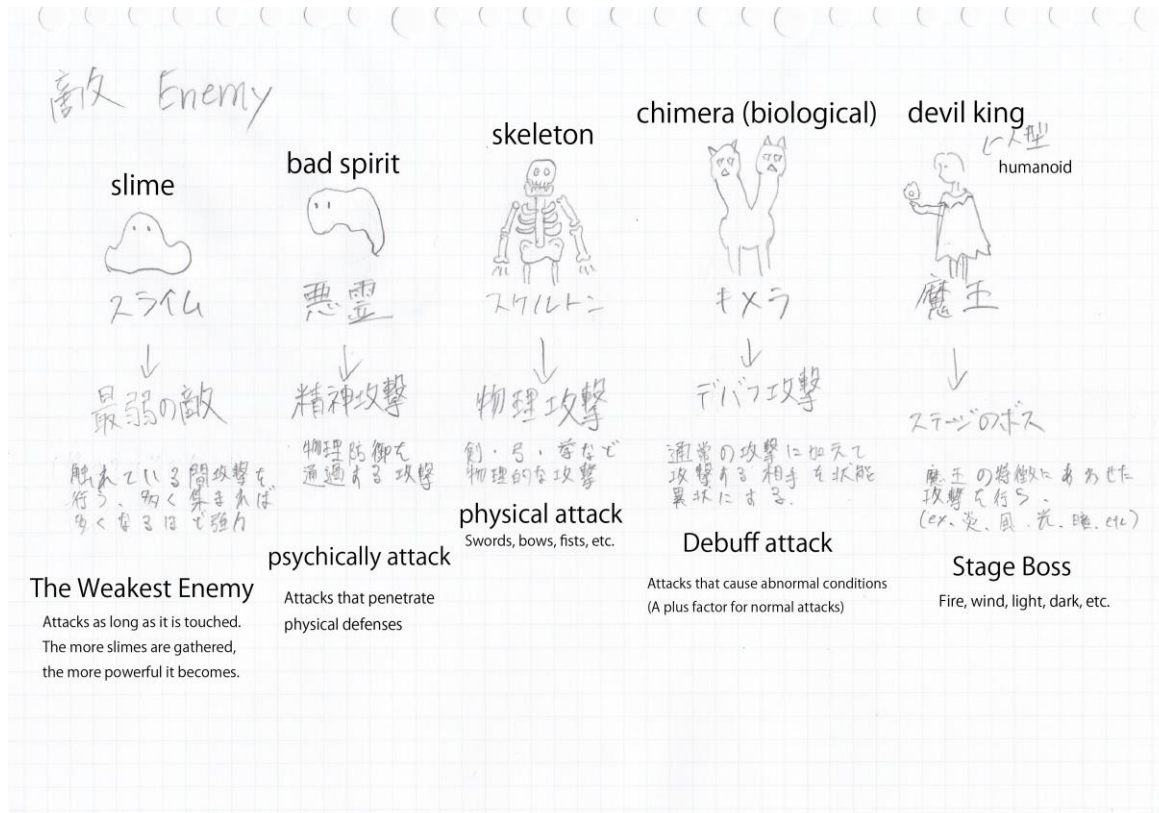 敵 Enemy
slime
スライム
↓
最弱の敵
触れている間攻撃を
行う。多く集まれば
多くなるほど強力
The Weakest Enemy
Attacks as long as it is touched.
The more slimes are gathered,
the more powerful it becomes.
bad spirit
悪霊
↓
精神攻撃
物理防御を
通過する攻撃
psychically attack
Attacks that penetrate
physical defenses
skeleton
スケルトン
↓
物理攻撃
剣・弓・拳など
物理的な攻撃
physical attack
Swords, bows, fists, etc.
chimera (biological)
キメラ
↓
デバフ攻撃
通常の攻撃に加えて
攻撃する相手を状態
異状にする.
Debuff attack
Attacks that cause abnormal conditions
(A plus factor for normal attacks)
devil king
人型
humanoid
魔王
↓
ステージのボス
魔王の特徴にあわせた
攻撃を行う.
(ex、炎、風、光、闇、etc)
Stage Boss
Fire, wind, light, dark, etc.